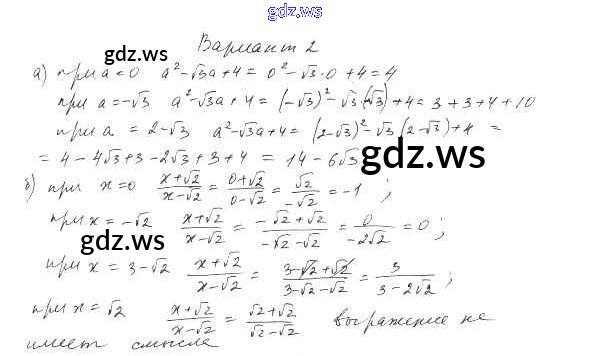 gdz.ws
gdz.ws
Вариант 2
а) при a=0 a²-√3a+4=0²-√3·0+4=4
при a=-√3 a²-√3a+4=(-√3)²-√3·(-√3)+4=3+3+4+10
при a=2-√3 a²-√3a+4=(2-√3)²-√3(2-√3)+4=
=4-4√3+3-2√3+3+4=14-6√3
gdz.ws
б) при x=0 (x+√2)/(x-√2)=(0+√2)/(0-√2)=√2/(-√2)=-1;
при x=-√2 (x+√2)/(x-√2)=(-√2+√2)/(-√2-√2)=0/(-2√2)=0;
gdz.ws
при x=3-√2 (x+√2)/(x-√2)=(3-√2+√2)/(3-√2-√2)=3/(3-2√2);
при x=√2 (x+√2)/(x-√2)=(√2+√2)/(√2-√2) выражение не
имеет смысла
gdz.ws